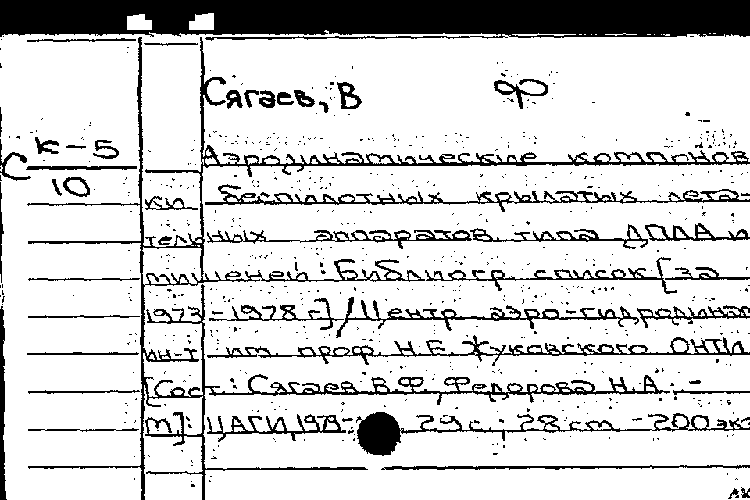 Сягаев, В фо
С к-5
10
Аэродинамические компонов
ки беспилотных крылатых лета-
тельных аппаратов типа ДПЛА и
мишеней: Библиогр. список [за
1973-1978 г.] / Центр. аэро-гидродинам
ин-т им. проф. Н.Е. Жуковского. ОНТИ.
[Сост.: Сягаев В.Ф., Федорова Н.А. -
М]: ЦАГИ, 1979- 29 с.; 28 cm - 200 экз